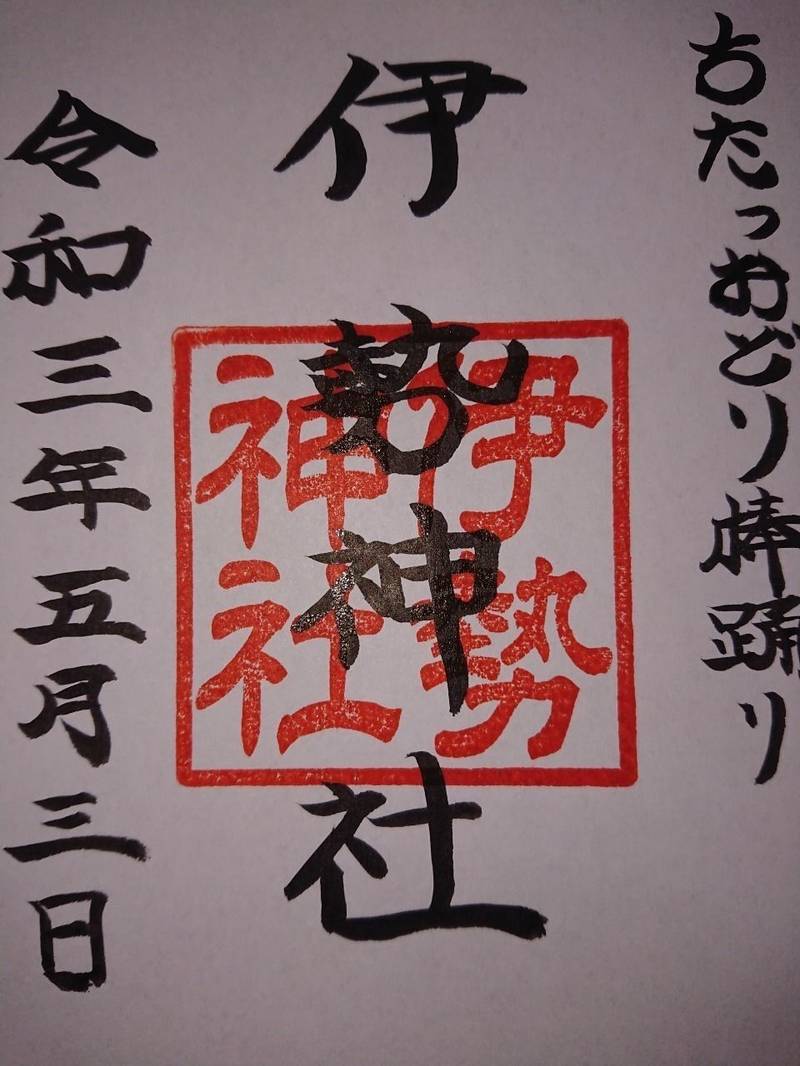 ちたっおどり棒踊り
伊勢神社
伊勢
神社
令和三年五月三日